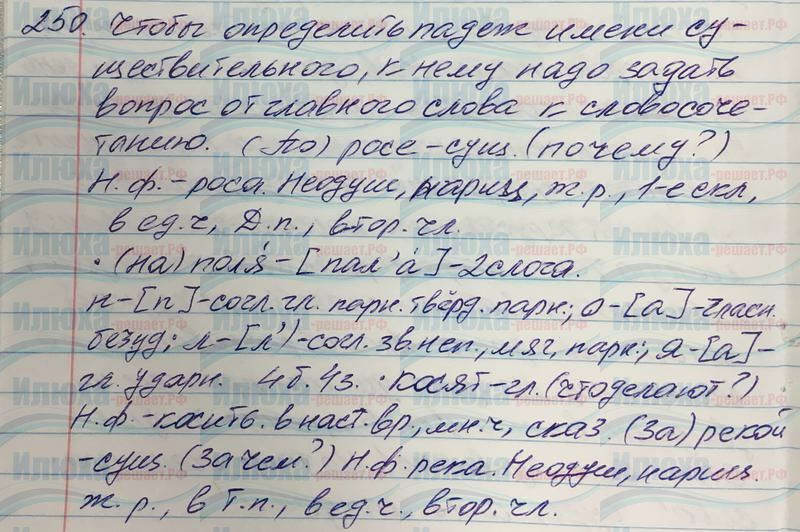 250. Чтобы определить падеж имени су-
ществительного, к нему надо задать
вопрос от главного слова к словосоче-
танию. (По) росе - сущ. (почему?)
Н.ф. - роса. Неодуш., нариц., ж.р., 1-е скл,
в ед.ч, Д.п., втор. чл.
· (на) поля́ - [пал'а́] - 2 слога.
п - [п] - согл. гл. парн. твёрд. парн.; о - [а] - гласн.
безуд; л - [л') - согл. зв. неп., мяг, парн.; я - [а] -
гл. ударн. 4б. 4з. · косят - гл. (что делают?)
Н.ф. - косить. в наст. вр, мн.ч, сказ. (За) рекой
- сущ. (за чем?) Н.ф. река. Неодуш, нариц.
ж.р., в Т.п., в ед.ч., втор. чл.